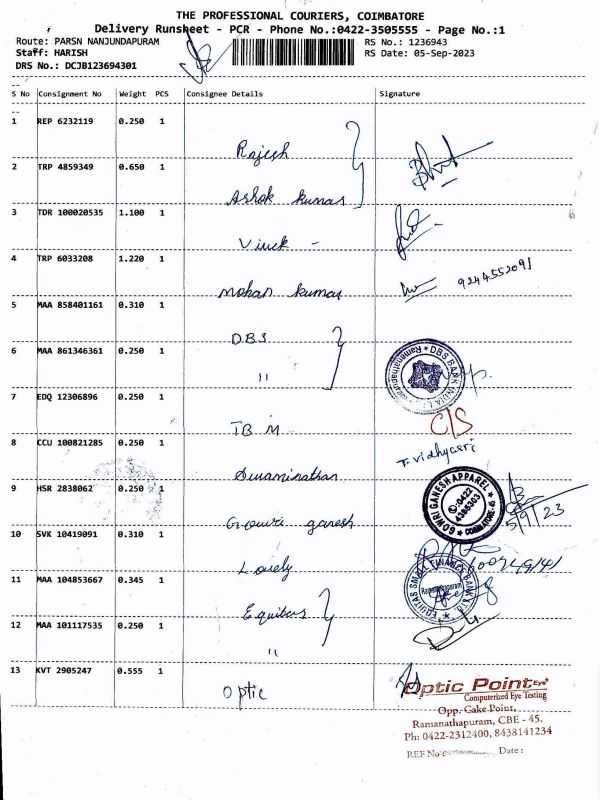 THE PROFESSIONAL COURIERS, COIMBATORE
Delivery Runsheet - PCR - Phone No.:0422-3505555 - Page No.:1
Route: PARSN NANJUNDAPURAM
RS No.: 1236943
Staff: HARISH
RS Date: 05-Sep-2023
DRS No.: DCJB123694301
S No Consignment No Weight PCS Consignee Details Signature
1 REP 6232119 0.250 1
Rajesh
2 TRP 4859349 0.650 1
Ashok kumar
3 TDR 100020535 1.100 1
Vivek -
4 TRP 6033208 1.220 1
Mohan kumar 9244552091
5 MAA 858401161 0.310 1
DBS
6 MAA 861346361 0.250 1
"
DBS BANK INDIA
Ramanathapuram
7 EDQ 12306896 0.250 1
TBM C/S
8 CCU 100821285 0.250 1
T. Vidhyasri
Swaminathan
9 HSR 2838062 0.250 1
GOWRI GANESH APPAREL
✆:0422
4386303
COIMBATORE-45
Gowri ganesh 5/9/23
10 SVK 10419091 0.310 1
Lovely
11 MAA 104853667 0.345 1
EQUITAS SMALL FINANCE BANK
Ramanathapuram
Equitas
12 MAA 101117535 0.250 1
"
13 KVT 2905247 0.555 1
Optic
Optic Point
Computerized Eye Testing
Opp. Cake Point,
Ramanathapuram, CBE - 45.
Ph: 0422-2312400, 8438141234
REF No: Date: